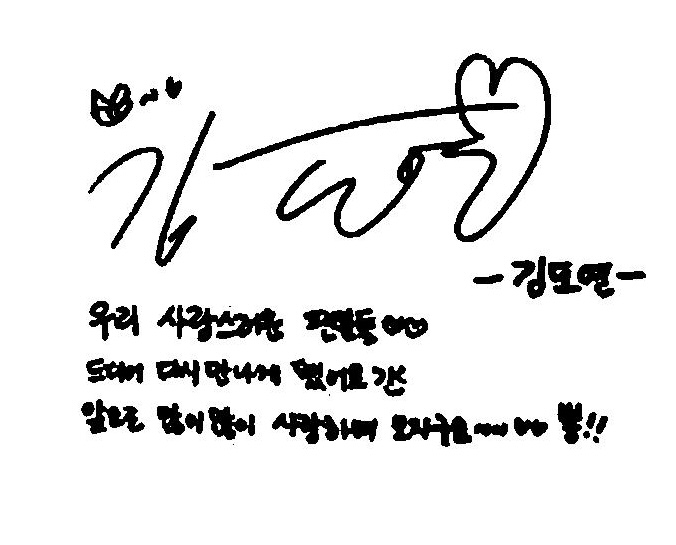 -김도연-
우리 사랑스러운 팬분들♡♡
드디어 다시 만나게 됐어요
앞으로 많이많이 사랑하며 보자구요~~ ♡♡ 뿅!!